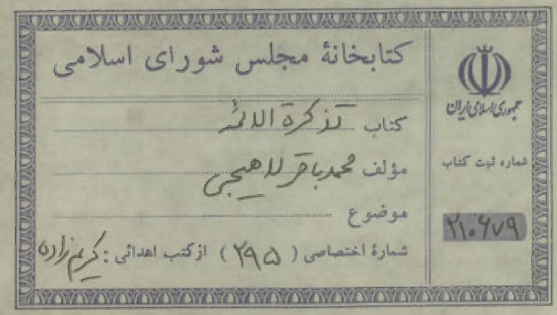 کتابخانهٔ مجلس شورای اسلامی
کتاب تذکرة الائمه
مؤلف محمدباقر لاهیجی
موضوع
شمارهٔ اختصاصی ( ۲۹۵ ) از کتب اهدائی : کریم‌زاده
جمهوری اسلامی ایران
شماره ثبت کتاب
۲۱۰۶۷۹